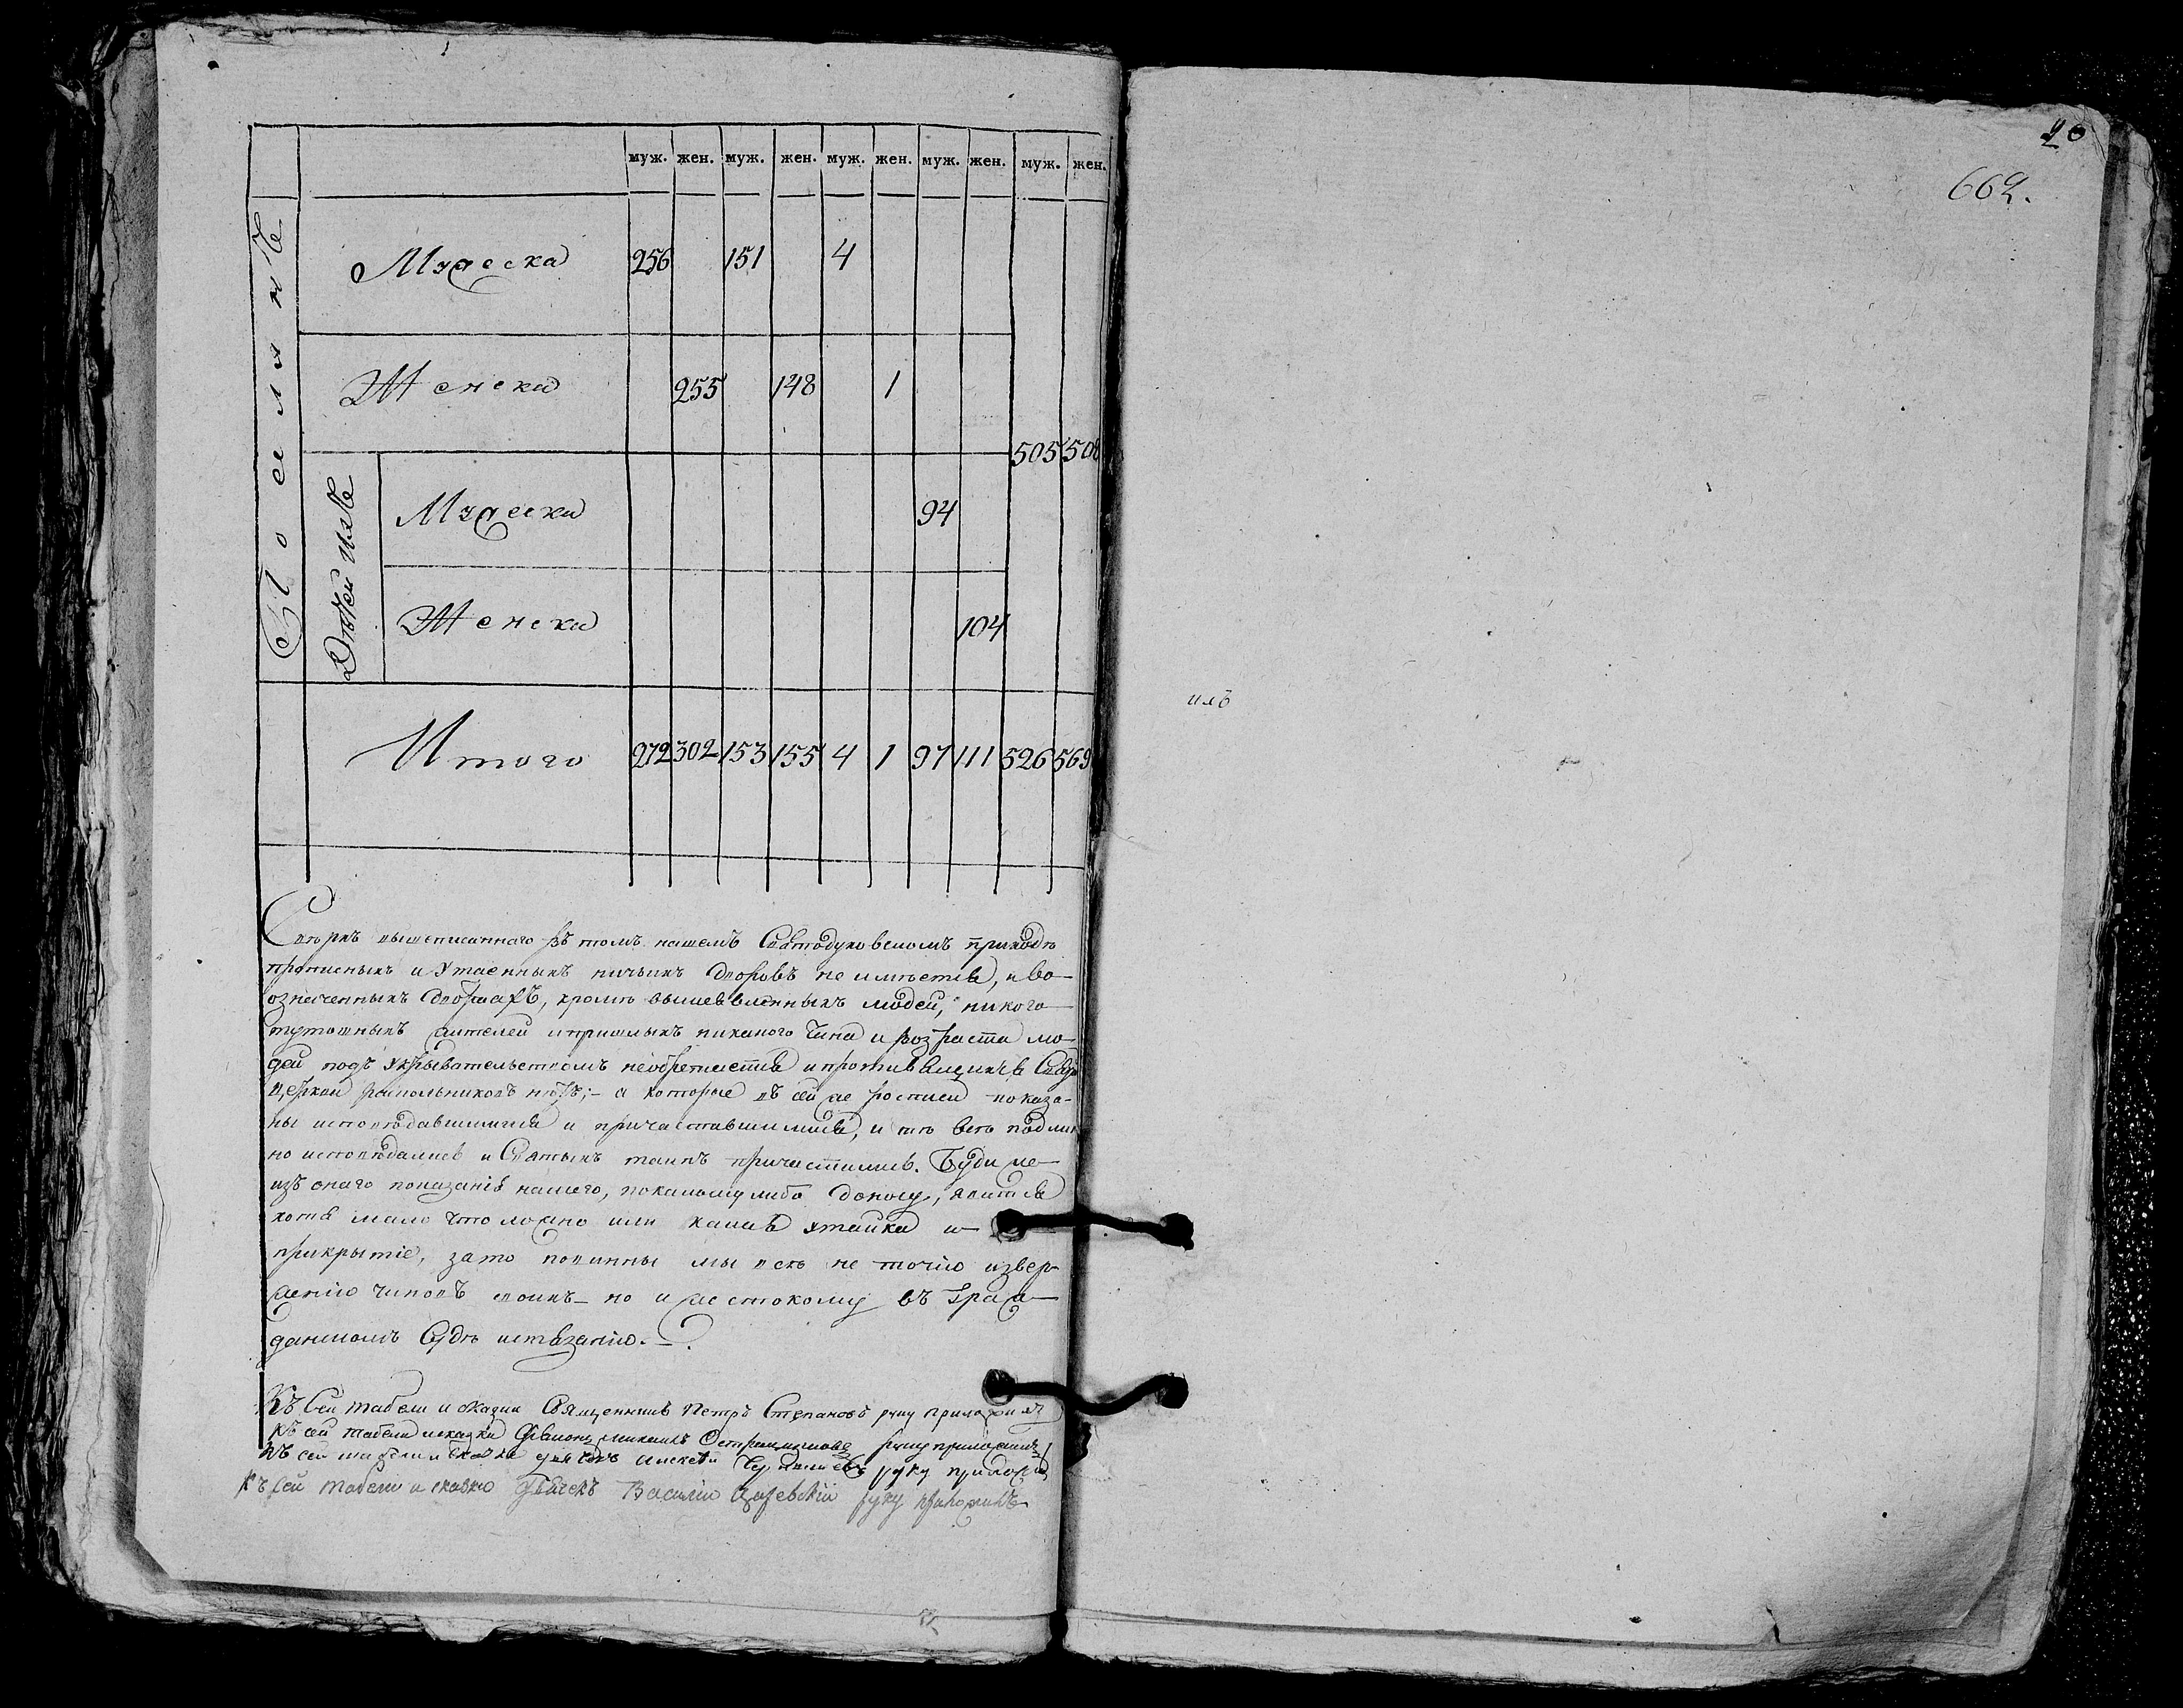 муж. жен. муж. жен. муж. жен. муж. жен. муж. жен.
Поселянѣ
Мужеска 256 151 4
Женска 255 148 1
505 508
Дѣтей ихъ
Мужеска 94
Женска 104
Итого 272 302 153 155 4 1 97 111 526 569
Сверхъ вышеписаннаго въ томъ нашемъ Святодуховскомъ приходѣ
прописныхъ и утаенныхъ ничьихъ дворовъ не имѣется, и во
означенныхъ дворахъ, кромѣ вышеявленныхъ людей, никого
тутошныхъ жителей и пришлыхъ никакого чина и возраста лю-
дей подъ укрывательствомъ необретается и противящихся Святой
церкви раскольниковъ нѣтъ; а которые въ сей же росписи показа-
ны исповѣдавшимися и причаствшимися, и тѣ всѣ подлин
но исповѣдались и Святыхъ таинъ причастились. Буди же
изъ онаго показанія нашего, покакомулибо доносу, явится
хотя мало что ложно или какая утайка и
прикрытіе, зато повинны мы всѣ не точію извер-
женію чиновъ своихъ но и жестокому въ граж-
данскомъ Судѣ истязанію.
Къ сей табели и сказки Священникъ Петръ Степановъ руку приложилъ
Къ сей табели и сказки руку приложилъ
Къ сей табели и сказке дьячокъ Алексѣй руку приложилъ
Къ сей табели и сказкѣ дьячекъ Василій руку приложилъ
20
662.
ихъ